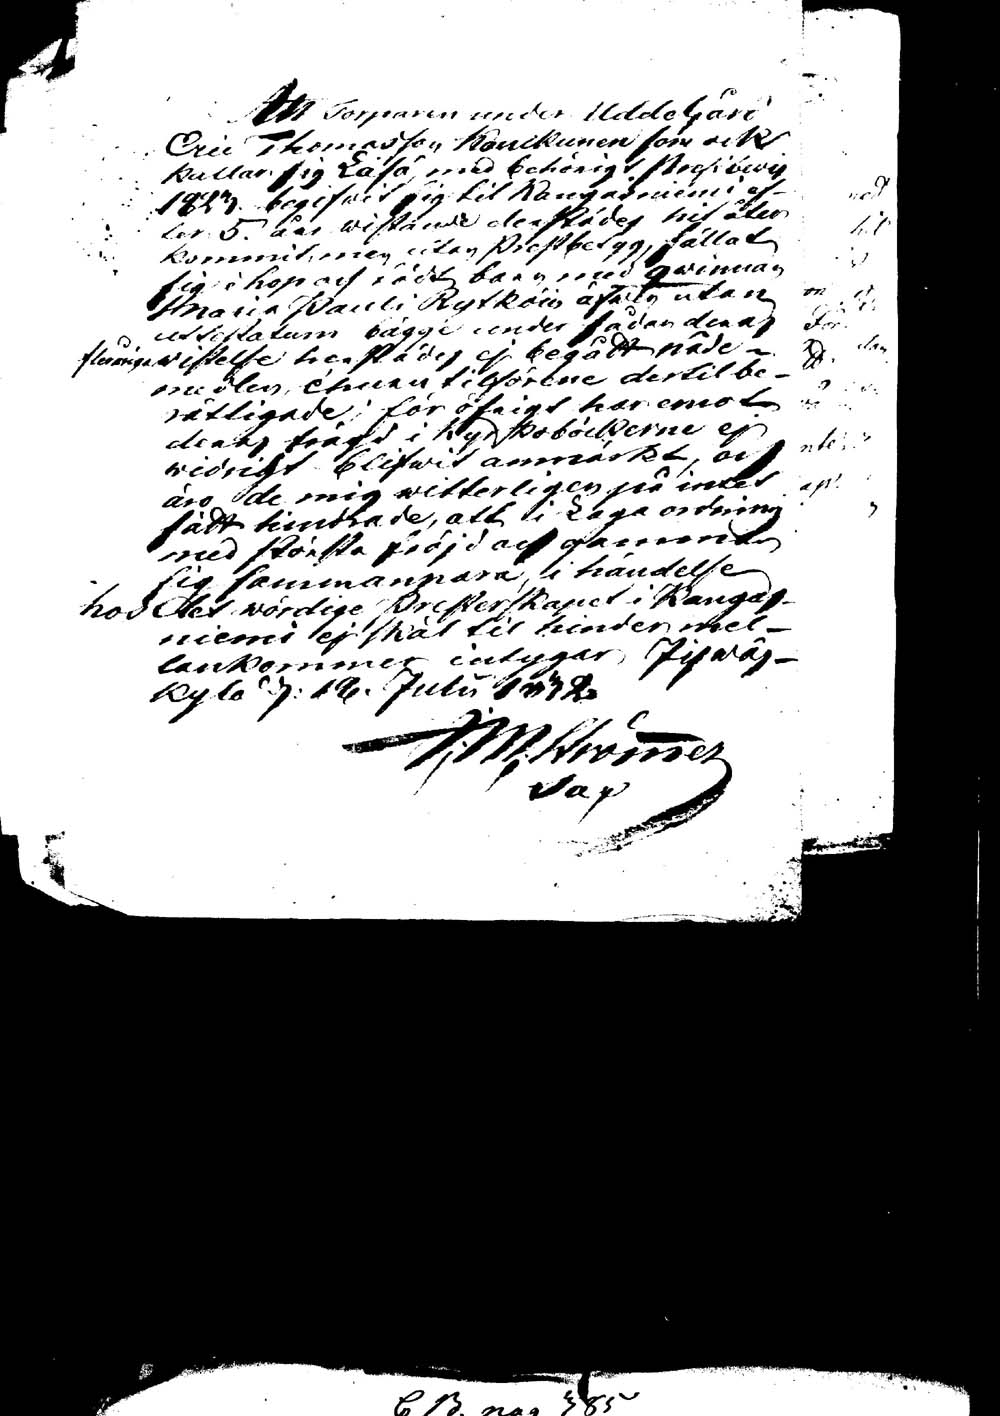 Att Torparen under Udde Gård
Eric Thomasson Kaukunen som ock
kallar sig Läisä, med behörigt Prestbevis
182 begifwit sig til Kangasniemi ef-
ter 5. års wistande derstädes hit åter
kommit, men utan Prestbetyg, fällat
sig i hop och född barn med qwinnan
Maria Pauli Rytköin äfwen utan
attestatum bägge under sådan deras
wistelse herstädes ej begådt nåde-
medlen, ehuru tilförene dertil be-
rättigade; för öfrigt har emot
deras frägd i Kyrkoböckerne ej
widrigt blifwit anmärkt, och
äro de mig witterligen på intet
sädt hindrade, att i Laga ordning
med största fröjd och gamman
sig sammanpara, i händelse
hos det wördige Presterskapet i Kangas-
niemi ej skäl til hinder mel-
lankommer intygar, Jyfwäs-
kylä d. 16. Julii 1832
J. M. Strömmer
Sap
C B. pag 385